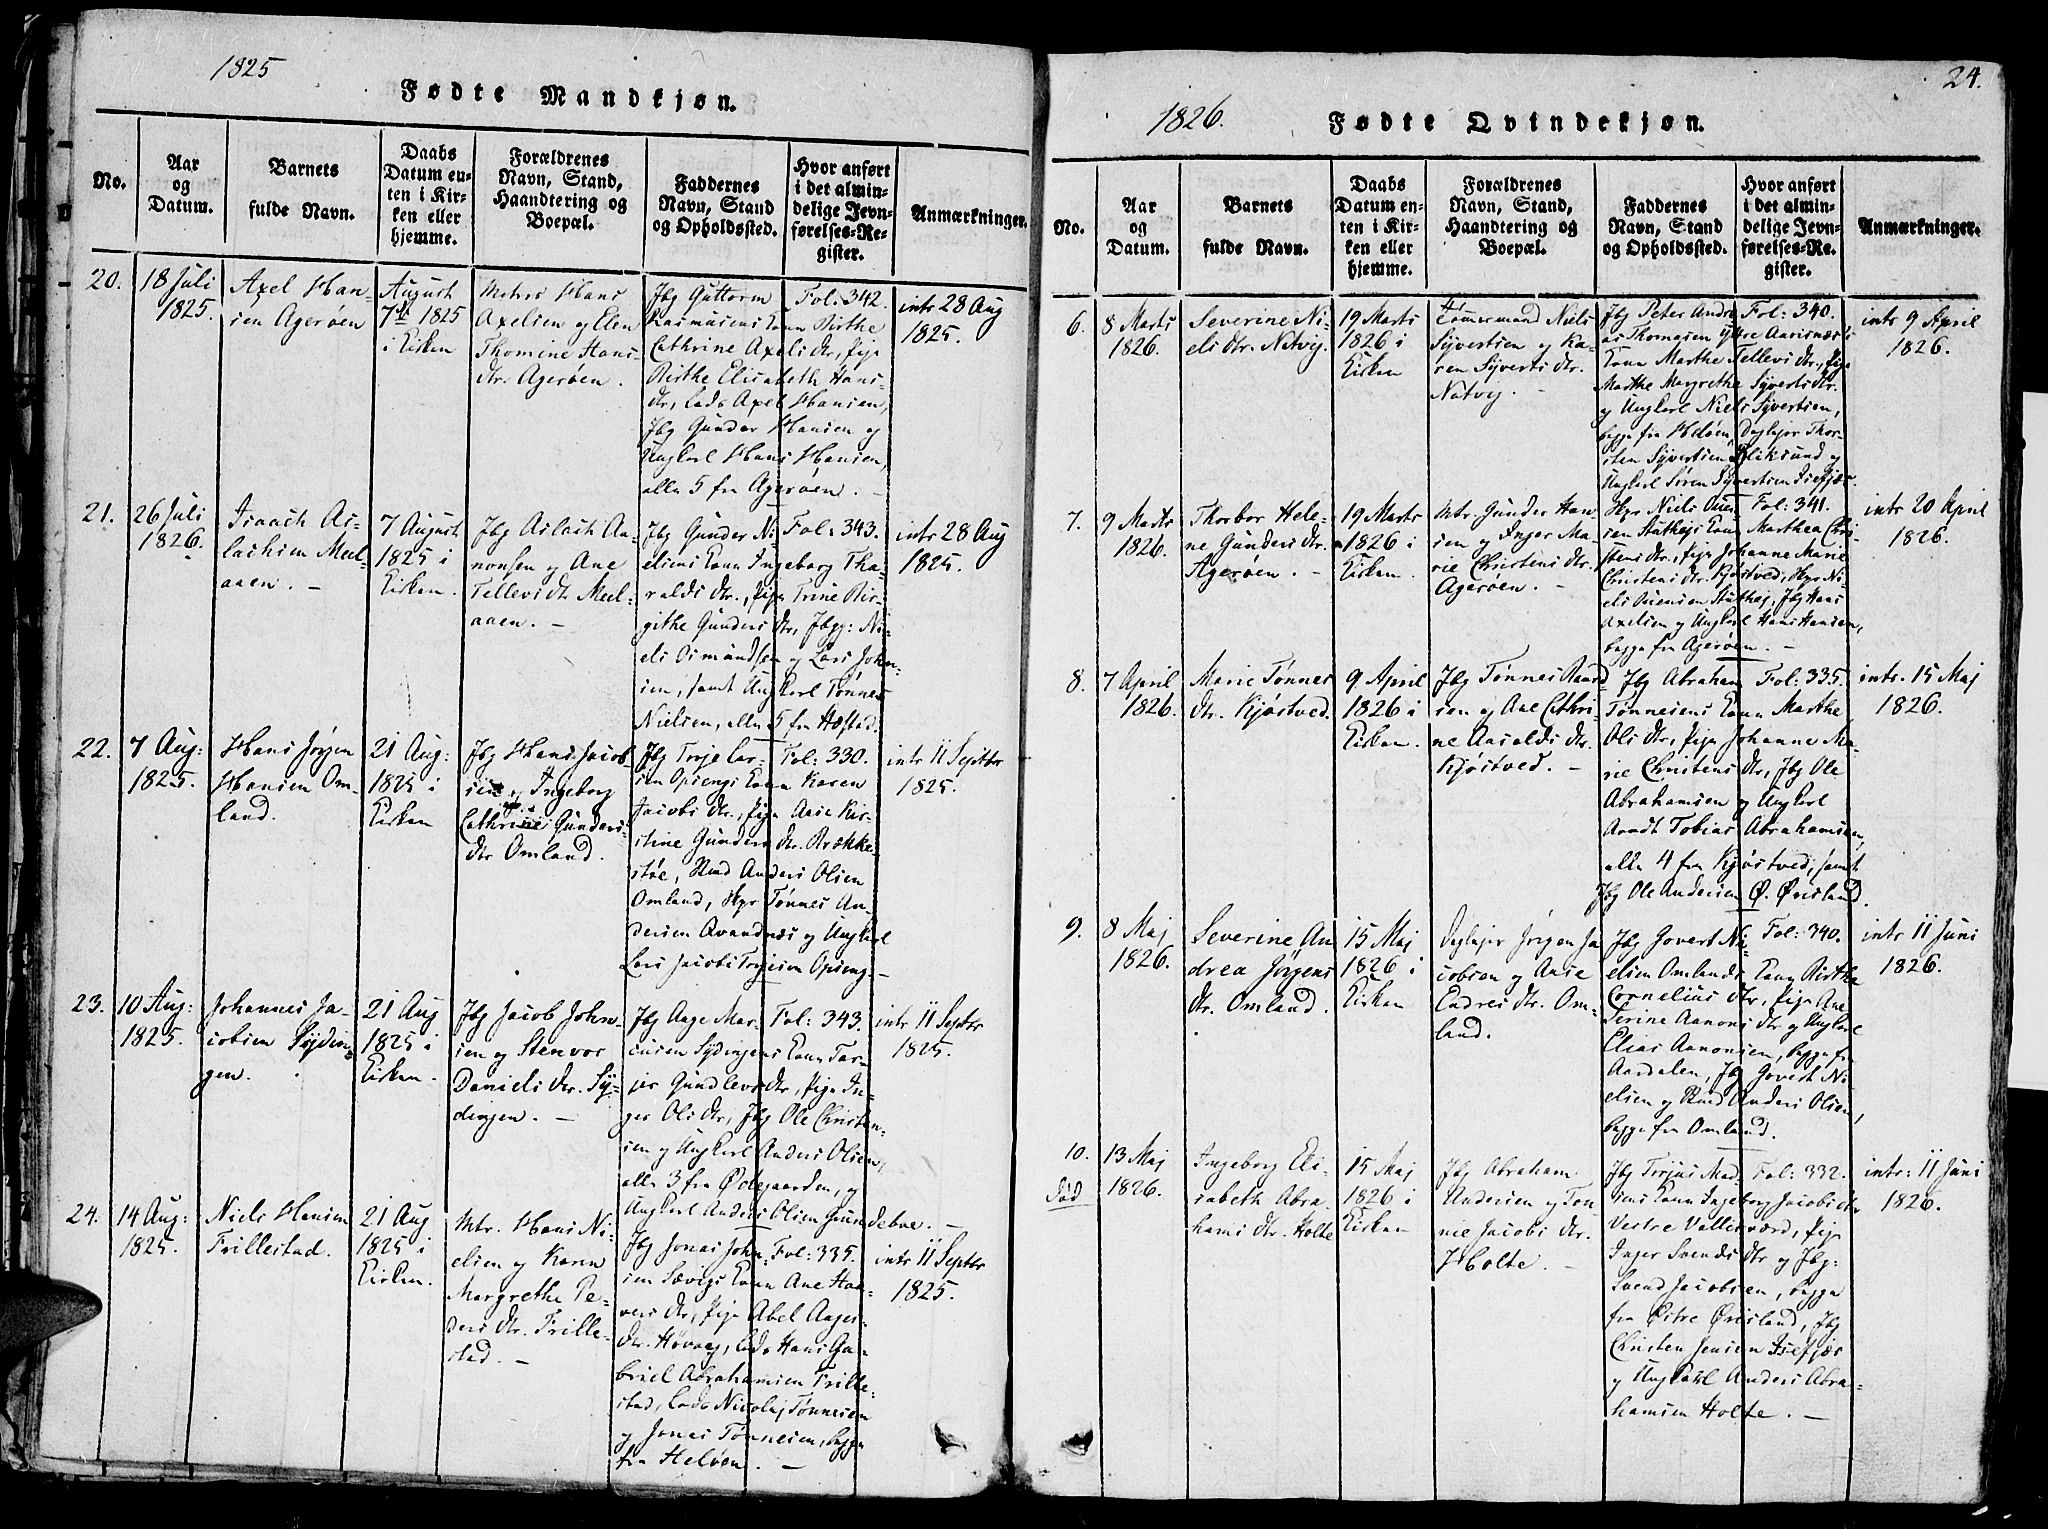 1825
Fødte Mandkjøn.
No.
Aar
og
Datum.
Barnets
fulde Navn.
Daabs
Datum en-
ten i Kir-
ken eller
hjemme.
Forældrenes
Navn, Stand,
Haandtering og
Boepæl.
Faddernes
Navn, Stand
og Opholdssted.
Hvor anført
i det almin-
delige Jevn-
førelses-Re-
gister.
Anmærkninger.
20.
18 Juli
1825.
Axel Han-
sen Agerøen
August
7de 1825
i Kirken
Matros Hans
Axelsen og Elen
Thomine Hans
dtr. Agerøen.
Jbg Guttorm
Rasmusens Kone Birthe
Cathrine Axels dtr, Pige
Birthe Elisabeth Hans
dtr, Lods Axel Hansen,
Jbg Gunder Hansen og
Ungkarl Hans Hansen,
alle 5 fra Agerøen.
Fol: 342.
intr 28 Aug
1825.
21.
26 Juli
1826.
Isaach As-
lachsen Mæl-
aaen.
7 August
1825 i
Kirken.
Jbg Aslach Aa-
nonsen og Ane
Tellevs dtr Mæl-
aaen.
Jbg Gunder Ni-
elsens Kone Ingeborg Tha-
ralds dtr., Pige Trine Bir-
githe Gunders dtr, Jbgg: Ni-
els Osmundsen og Lars John-
sen, samt Ungkarl Tønnes
Nielsen, alle 5 fra Hæstad.
Fol: 343.
intr 28 Aug
1825.
22.
7 Aug:
1825.
Hans Jørgen
Hansen Om-
land.
21 Aug:
1825 i
Kirken
Jbg Hans Jacob-
sen og Ingeborg
Cathrine Gunders
dtr Omland.
Jbg Torje Lar-
sen Opsengs Kone Karen
Jacobs dtr., Pige Aase Kir-
stine Gunders dtr. Brække-
støe, Smd Anders Olsen
Omland, Hpr Tønnes An-
dersen Qvandnæs og Ungkarl
Lars Jacobs Torjesen Opseng.
Fol: 330.
intr 11 Septbr
1825.
23.
10 Aug:
1825.
Johannes Ja-
cobsen Sÿdin-
gen.
21 Aug
1825 i
Kirken.
Jbg Jacob John-
sen og Stenvor
Daniels dtr. Sÿ-
dingen.
Jbg Aage Mar-
cusen Sydingens Kone Tar-
jer Gundlevs dtr, Pige In-
ger Ols dtr, Jbg Ole Christen-
sen og Ungkarl Anders Olsen,
alle 3 fra Ødegaarden, og
Ungkarl Anders Olsen Grundebue.
Fol: 343.
intr 11 Septbr
1825.
24.
14 Aug:
1825.
Niels Hansen
Trillestad.
21 Aug
1825 i
Kirken.
Mtr. Hans Ni-
elsen og Karen
Margrethe Pe-
ders dtr. Trille-
stad.
Jbg Jonas John-
sen Sævigs Kone Ane Haa-
vers dtr, Pige Abel Aages
dtr. Høvaag, Lods Hans Ga-
briel Abrahamsen Trille-
stad, Lods Nicolaj Tønnesen
og Jonas Tønnesen, begge
fra Helöen.
Fol: 335.
intr 11 Septbr
1825.
24.
1826.
Fødte Qvindekjøn.
No.
Aar
og
Datum.
Barnets
fulde Navn.
Daabs
Datum en-
ten i Kir-
ken eller
hjemme.
Forældrenes
Navn, Stand,
Haandtering og
Boepæl.
Faddernes
Navn, Stand
og Opholdssted.
Hvor anført
i det almin-
delige Jevn-
førelses-Re-
gister.
Anmærkninger.
6.
8 Marts
1826.
Severine Ni-
els dtr. Natvig.
19 Marts
1826 i
Kirken
Tömmermand Niels
Syvertsen og Ka-
ren Syverts dtr.
Natvig.
Jbg Peter Andre-
as Thomasen Yttre Aarisnæs's
Kone Marthe Tellevs dtr., Pige
Marthe Margrethe Syverts dtr.
og Ungkarl Niels Syvertsen,
begge fra Helöen, Daglejer Thor-
sten Syvertsen Bliksund og
Ungkarl Søren Syvertsen Isefjær.
Fol: 340.
intr 9 April
1826.
7.
9 Marts
1826.
Thorbor Hele-
ne Gunders dtr.
Agerøen.
19 Marts
1826 i
Kirken.
Mtr. Gunder Han-
sen og Inger Ma-
rie Christens dtr.
Agerøen.
Hpr Niels Ouen-
sen Stuthejs Kone Marthea Chri-
stens dtr, Pige Johanne Marie
Christens dtr. Kjøstved, Hpr Ni-
els Ouensen Stuthej, Jbg Hans
Axelsen og Ungkarl Hans Hansen,
begge fra Agerøen.
Fol: 341.
intr 20 April
1826.
8.
7 April
1826.
Marie Tønnes
dtr. Kjøstved.
9 April
1826 i
Kirken.
Jbg Tønnes Baard-
sen og Ane Cathri-
ne Aasolds dtr.
Kjøstved.
Jbg Abraham
Tønnesens Kone Marthe
Ols dtr, Pige Johanne Ma-
rie Christens dtr, Jbg Ole
Abrahamsen og Ungkarl
Aandt Tobias Abrahamsen,
alle 4 fra Kjøstved, samt
Jbg Ole Andersen Ø. Øresland.
Fol: 335.
intr. 15 Maj
1826.
9.
8 Maj
1826.
Severine An
drea Jørgens
dtr. Omland.
15 Maj
1826 i
Kirken
Daglejer Jörgen Ja
cobsen og Aase
Endres dtr. Om-
land.
Jbg Govert Ni-
elsen Omlands Kone Birthe
Cornelius dtr, Pige Ane
Terine Aanons dtr og Ungkarl
Elias Aanonsen, begge fra
Aasdalen, Jbg Govert Ni-
elsen og Smd Anders Olsen,
begge fra Omland.
Fol: 340.
intr 11 Juni
1826.
10.
død
13 Maj
1826.
Ingeborg Eli-
sabeth Abra-
hams dtr. Holte
15 Maj
1826 i
Kirken
Jbg Abraham
Andersen og Ton-
nie Jacobs dtr.
Holte.
Jbg Torjus Mad-
sens Kone Ingeborg Jacobs dtr
Vestre Vallesværd, Pige
Inger Svends dtr og Jbg:
Svend Jacobsen, begge
fra Östre Øresland, Jbg
Christen Jensen Isefjær
og Ungkarl Anders Abra-
hamsen Holte.
Fol: 332.
intr: 11 Juni
1826.